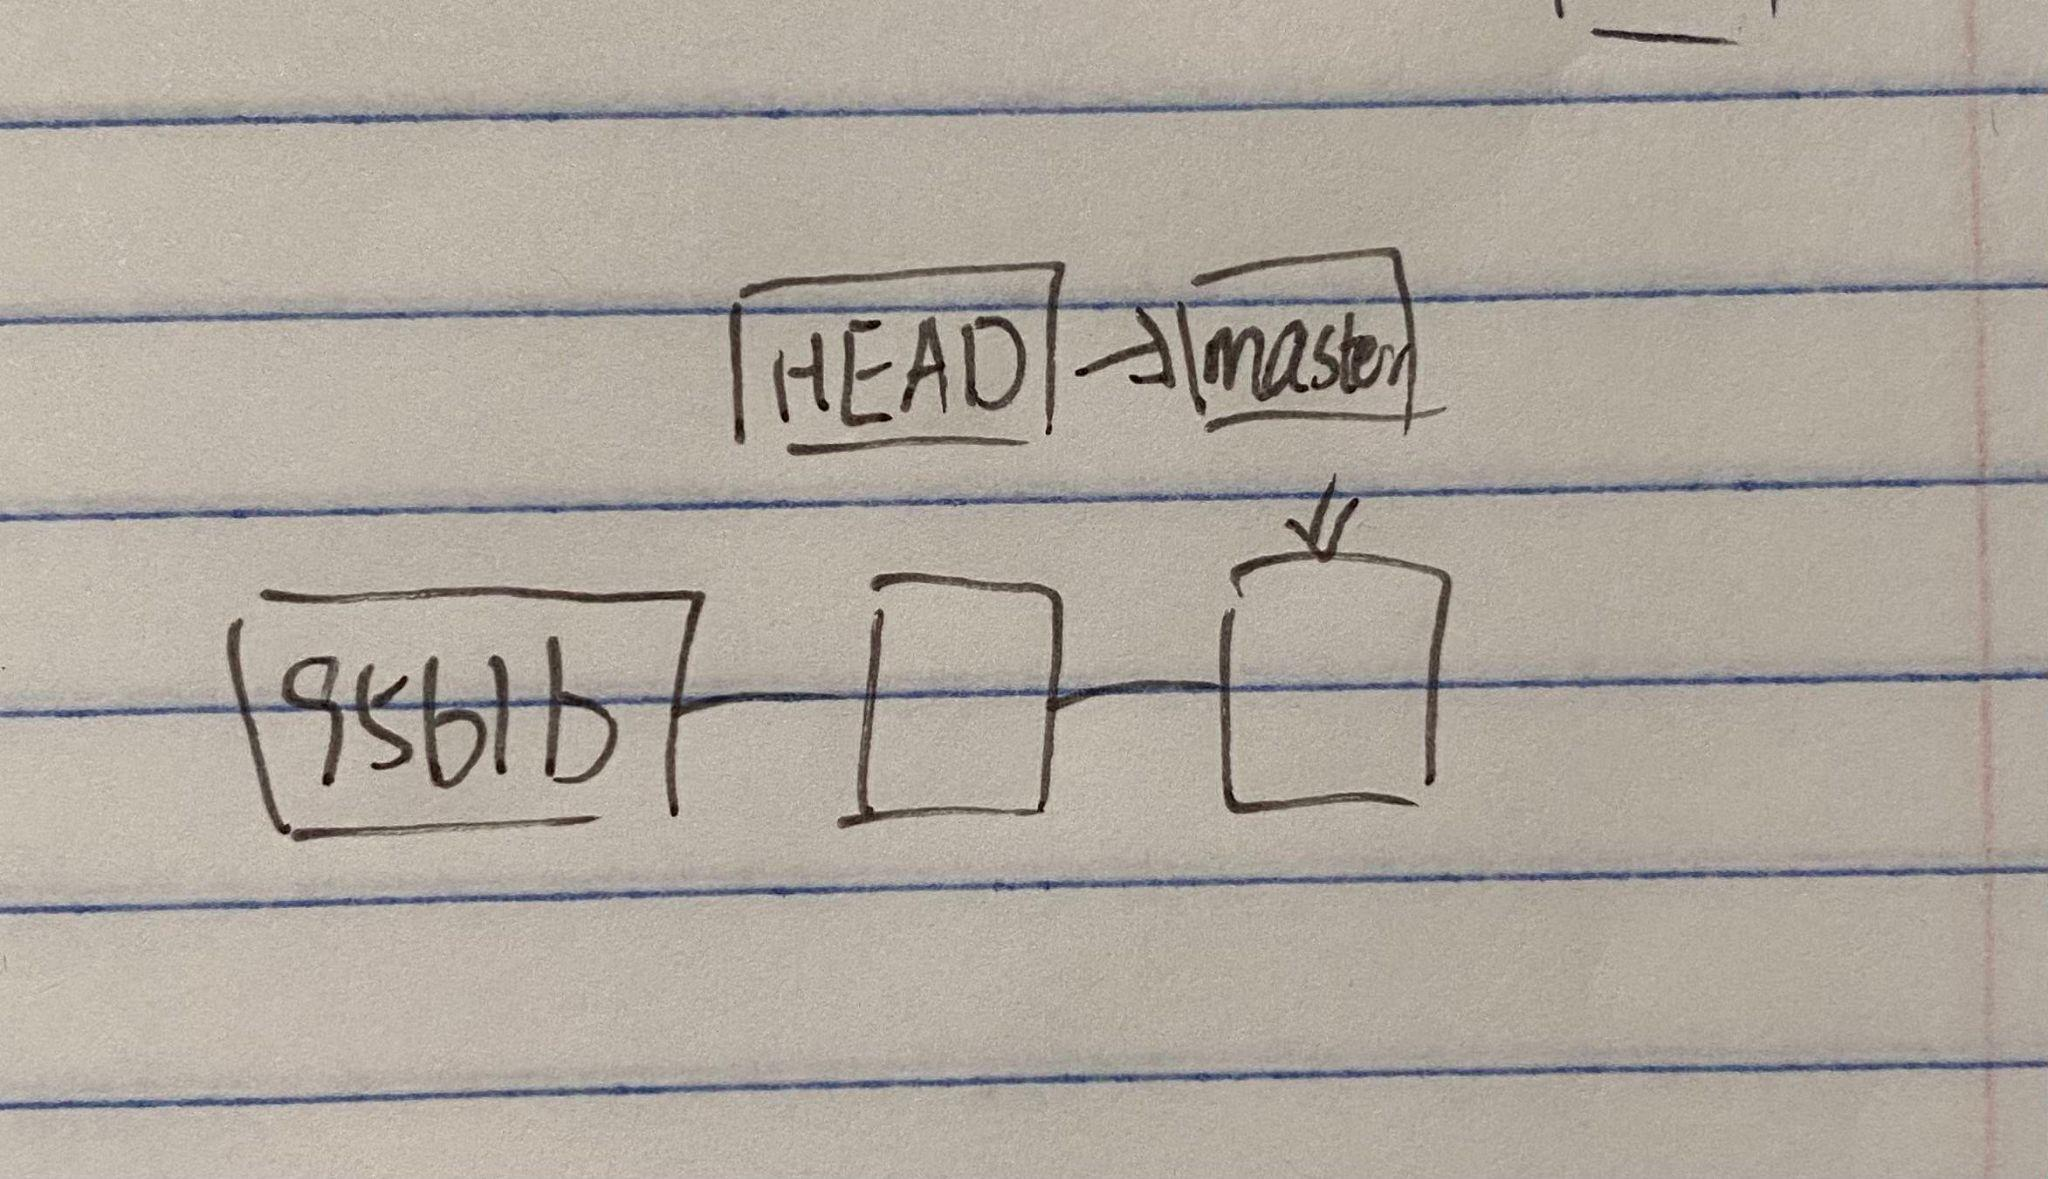 HEAD → master
95b1b